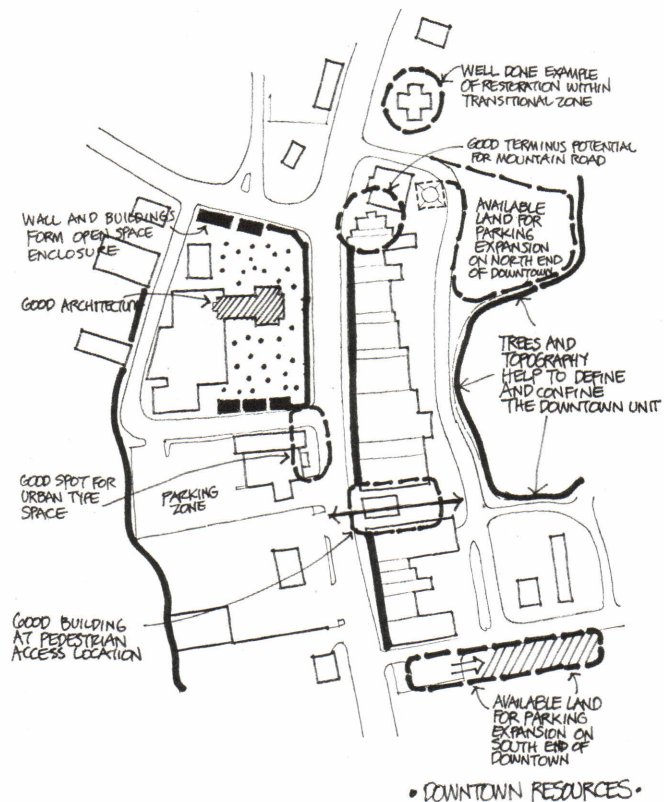 WELL DONE EXAMPLE
OF RESTORATION WITHIN
TRANSITIONAL ZONE
GOOD TERMINUS POTENTIAL
FOR MOUNTAIN ROAD
AVAILABLE
LAND FOR
PARKING
EXPANSION
ON NORTH END
OF DOWNTOWN
WALL AND BUILDINGS
FORM OPEN SPACE
ENCLOSURE
GOOD ARCHITECTURE
TREES AND
TOPOGRAPHY
HELP TO DEFINE
AND CONFINE
THE DOWNTOWN UNIT
GOOD SPOT FOR
URBAN TYPE
SPACE
PARKING
ZONE
GOOD BUILDING
AT PEDESTRIAN
ACCESS LOCATION
AVAILABLE LAND
FOR PARKING
EXPANSION ON
SOUTH END OF
DOWNTOWN
• DOWNTOWN RESOURCES •